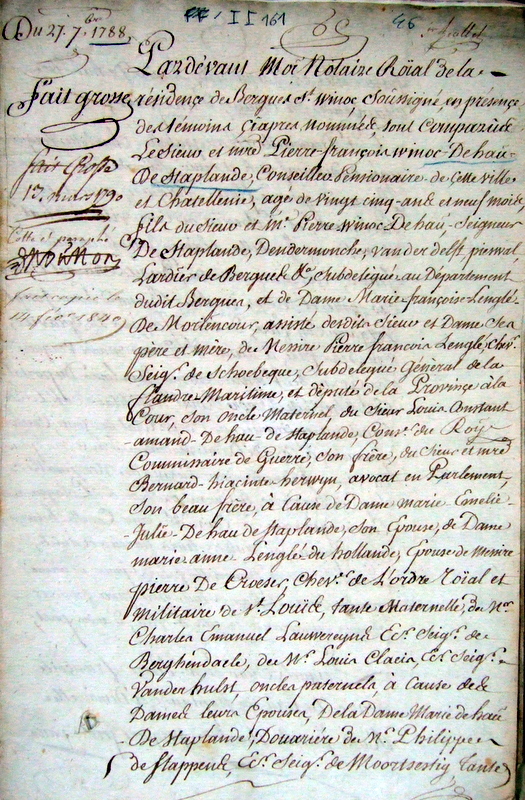 II 161
Du 27. 7.bre 1788
Pardevant Moi Notaire Roïal de la
Fait grosse
résidence de Bergues St. Winoc, soussigné, en presence
des témoins ciapres nommées, sont comparus
Le Sieur et mre Pierre-françois winoc-De hau-
fait Grosse
De Staplande, Conseiller pensionaire de cette ville
17. mars 1790
et Chatellenie, agé de vingt cinq-ans et neuf mois
fils du Sieur et Mr. Pierre Winoc De hau, Seigneur
De Staplande, Dendermonche, vander delft
Lardier de Bergues &c. Subdelegué au Département
dudit Bergues, et de Dame Marie françoise Lenglé
fait copie le
14 fév. 1840
De Moriencour, assisté desdits Sieur et Dame ses
père et mère, de Messire Pierre françois Lenglé, Chevr.
Seigr. de Schoebeque, Subdelegué General de la
flandre Maritime, et député de la Province à la
Cour, son oncle Maternel, du Sieur Louis Constant
-amand-De hau-de Staplande, Consr. du Roy
Commissaire de Guerre, son frère, du Sieur et mre
Bernard-hiacinte herwyn, avocat en Parlement,
Son beau frère, à Cause de Dame marie Emelie-
Julie-De hau de Staplande, son Epouse, de Dame
marie anne-Lenglé du hollande, Epouse de Messire
pierre De Croeser, Chevr. de L'ordre Roïal et
militaire de St. Louïs, tante Maternelle, de Mr.
Charles Emanuel Lauwereyns Ecr. Seigr. de
Berghendaele, de Mr. Louis Claeis, Ecr. Seigr.
Vanderhulst, oncles paternels, à Cause des
Dames leurs Epouses, De la Dame Marie de hau
De Staplande, Douarière de Mr. Philippe
de Stappens, Ecr. Seigr. de Moortsestig tante